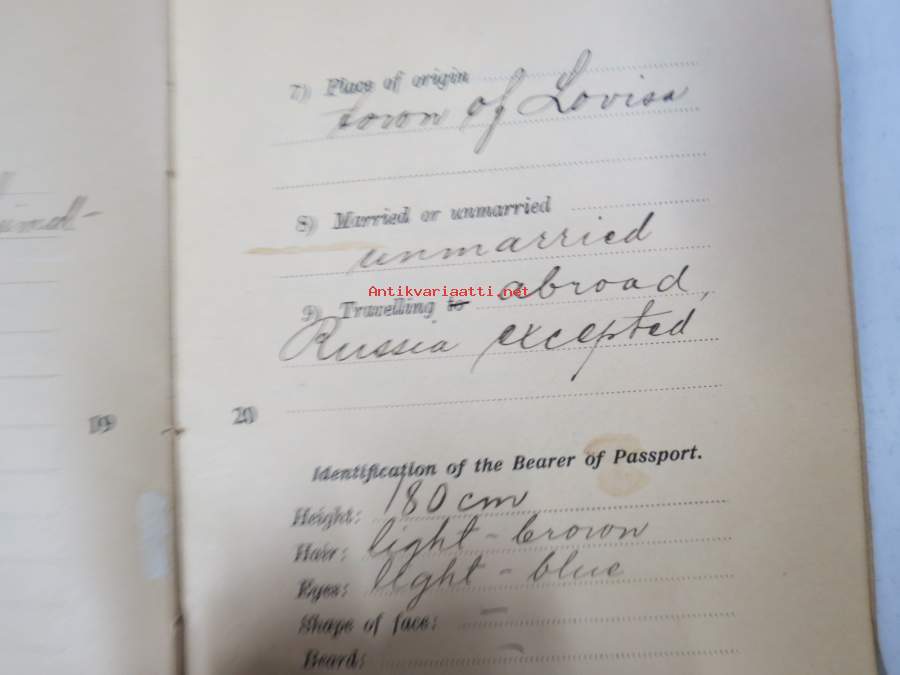 7) Place of origin
town of Lovisa
8) Married or unmarried
unmarried
Antikvariaatti.net
9) Travelling to abroad,
Russia excepted
19
20
Identification of the Bearer of Passport.
Height: 180 cm
Hair: light-brown
Eyes: light-blue
Shape of face: —
Beard: —